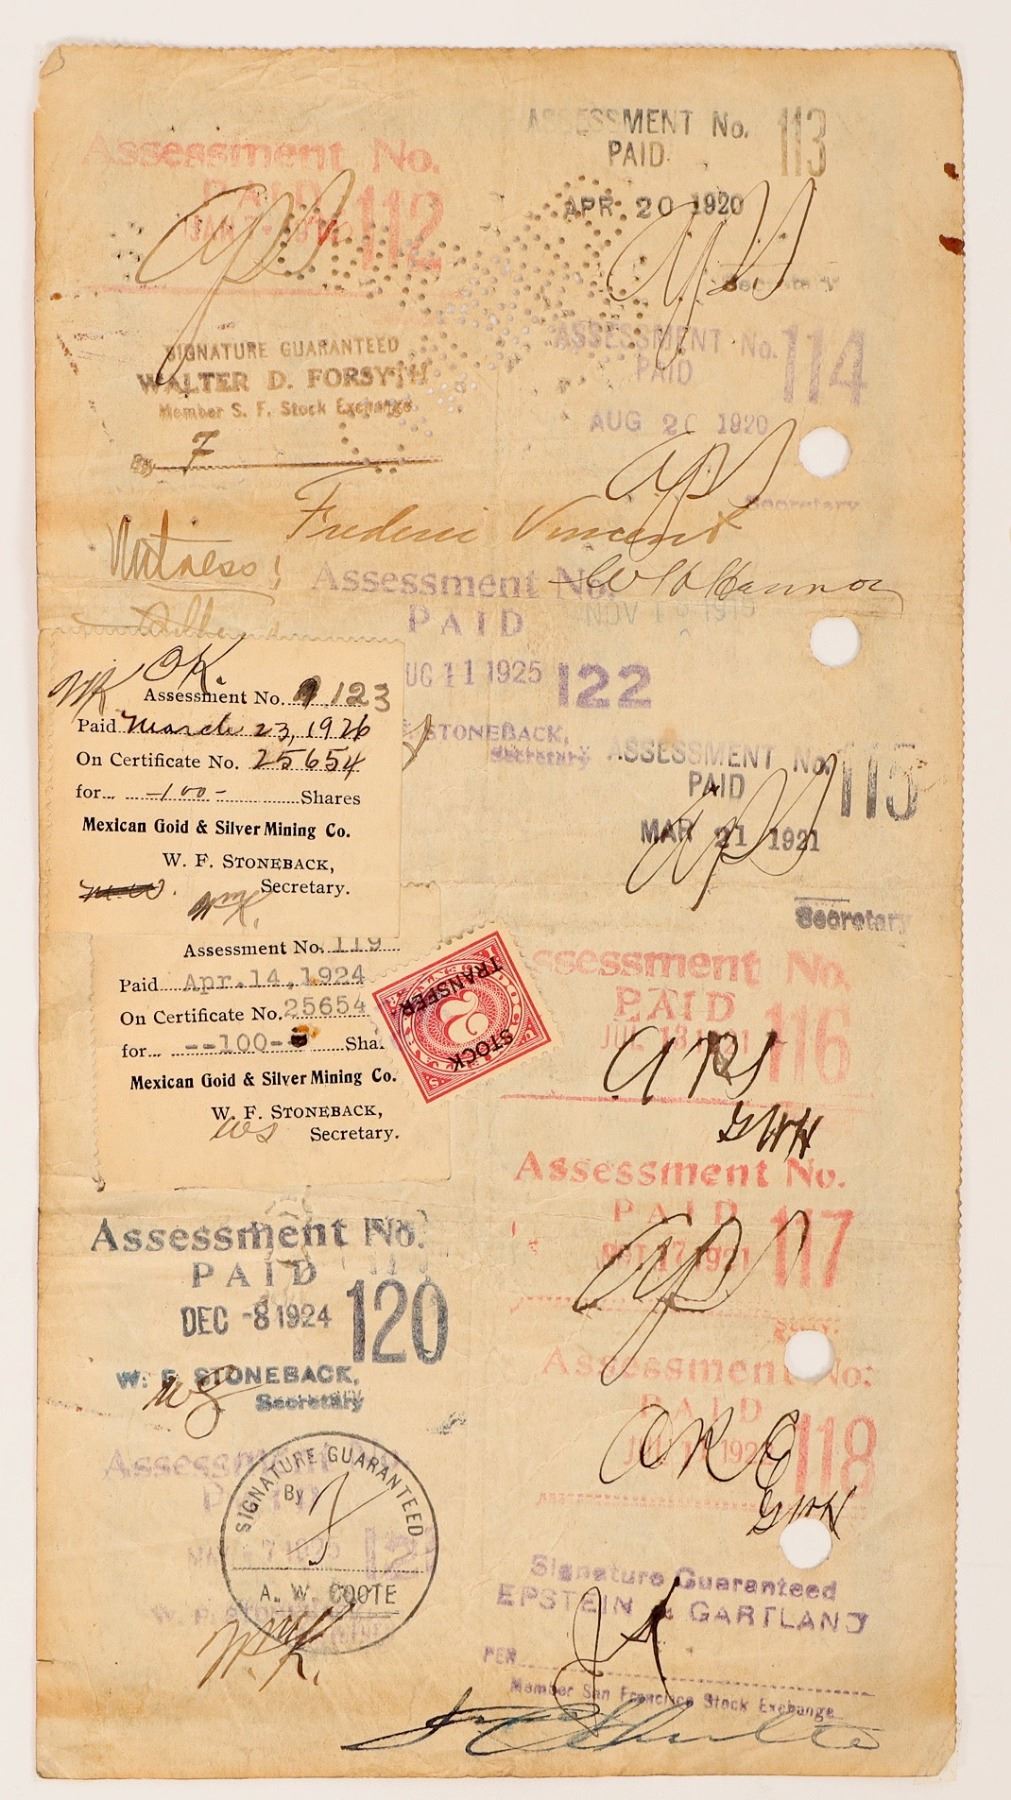 Assessment No.
PAID
112
ASSESSMENT No. 113
PAID
APR 20 1920
Secretary
SIGNATURE GUARANTEED
WALTER D. FORSYTH
Member S. F. Stock Exchange
By F
ASSESSMENT No. 114
PAID
AUG 20 1920
Secretary
Frederic Vincent
Witness!
Assessment No.
PAID
NOV 19 1919
AUG 11 1925 122
STONEBACK,
Secretary
OK.
Assessment No. 123
Paid March 23, 1926
On Certificate No. 25654
for -100- Shares
Mexican Gold & Silver Mining Co.
W. F. STONEBACK,
Secretary.
ASSESSMENT No. 115
PAID
MAR 21 1921
Secretary
Assessment No. 119
Paid Apr. 14, 1924
On Certificate No. 25654
for --100-- Sha
Mexican Gold & Silver Mining Co.
W. F. STONEBACK,
WS Secretary.
STOCK
TRANSFER
2
Assessment No.
PAID
JUL 13 1921 116
GWH
Assessment No.
PAID
117
Assessment No.
PAID
DEC -8 1924 120
W. F. STONEBACK,
Secretary
Assessment No.
PAID
118
GWH
Assessment No.
121
SIGNATURE GUARANTEED
By
A. W. COOTE
W.K.
Signature Guaranteed
EPSTEIN & GARTLAND
PER
Member San Francisco Stock Exchange